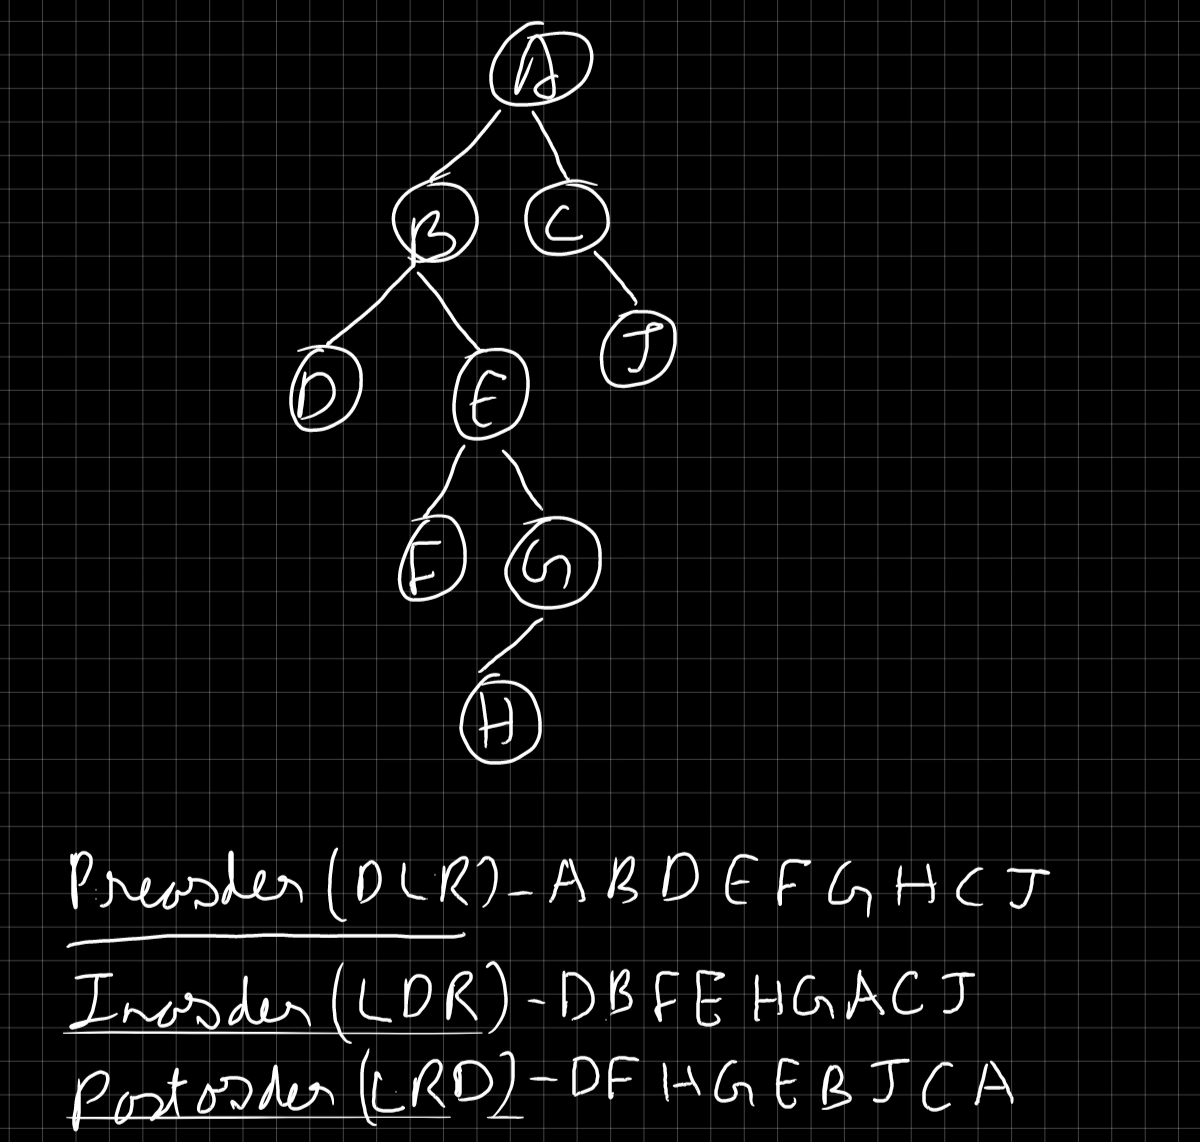 A
B C
D E J
F G
H
Preorder (DLR) - A B D E F G H C J
Inorder (LDR) - D B F E H G A C J
Postorder (LRD) - D F H G E B J C A